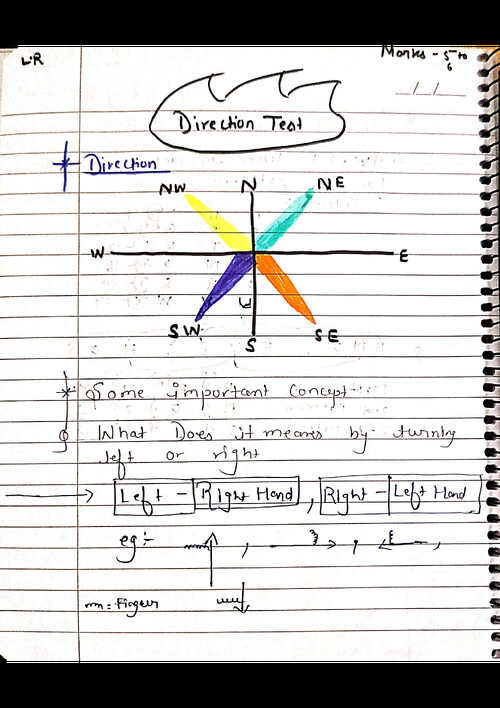 L.R
Marks - 5 to 6
_/_/_
Direction Test
Direction
NW N NE
W E
SW S SE
Some important Concept
What Does it means by turning
left or right
Left - Right Hand , Right - Left Hand
eg:-
= Fingers